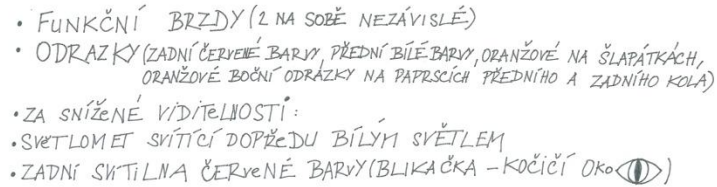 • FUNKČNÍ BRZDY (2 NA SOBĚ NEZÁVISLÉ)
• ODRAZKY (ZADNÍ ČERVENÉ BARVY, PŘEDNÍ BÍLÉ BARVY, ORANŽOVÉ NA ŠLAPÁTKÁCH,
ORANŽOVÉ BOČNÍ ODRÁZKY NA PAPRSCÍCH PŘEDNÍHO A ZADNÍHO KOLA)
• ZA SNÍŽENÉ VIDITELNOSTI:
• SVĚTLOMET SVÍTÍCÍ DOPŘEDU BÍLÝM SVĚTLEM
• ZADNÍ SVITILNA ČERVENÉ BARVY (BLIKAČKA – KOČIČÍ OKO)